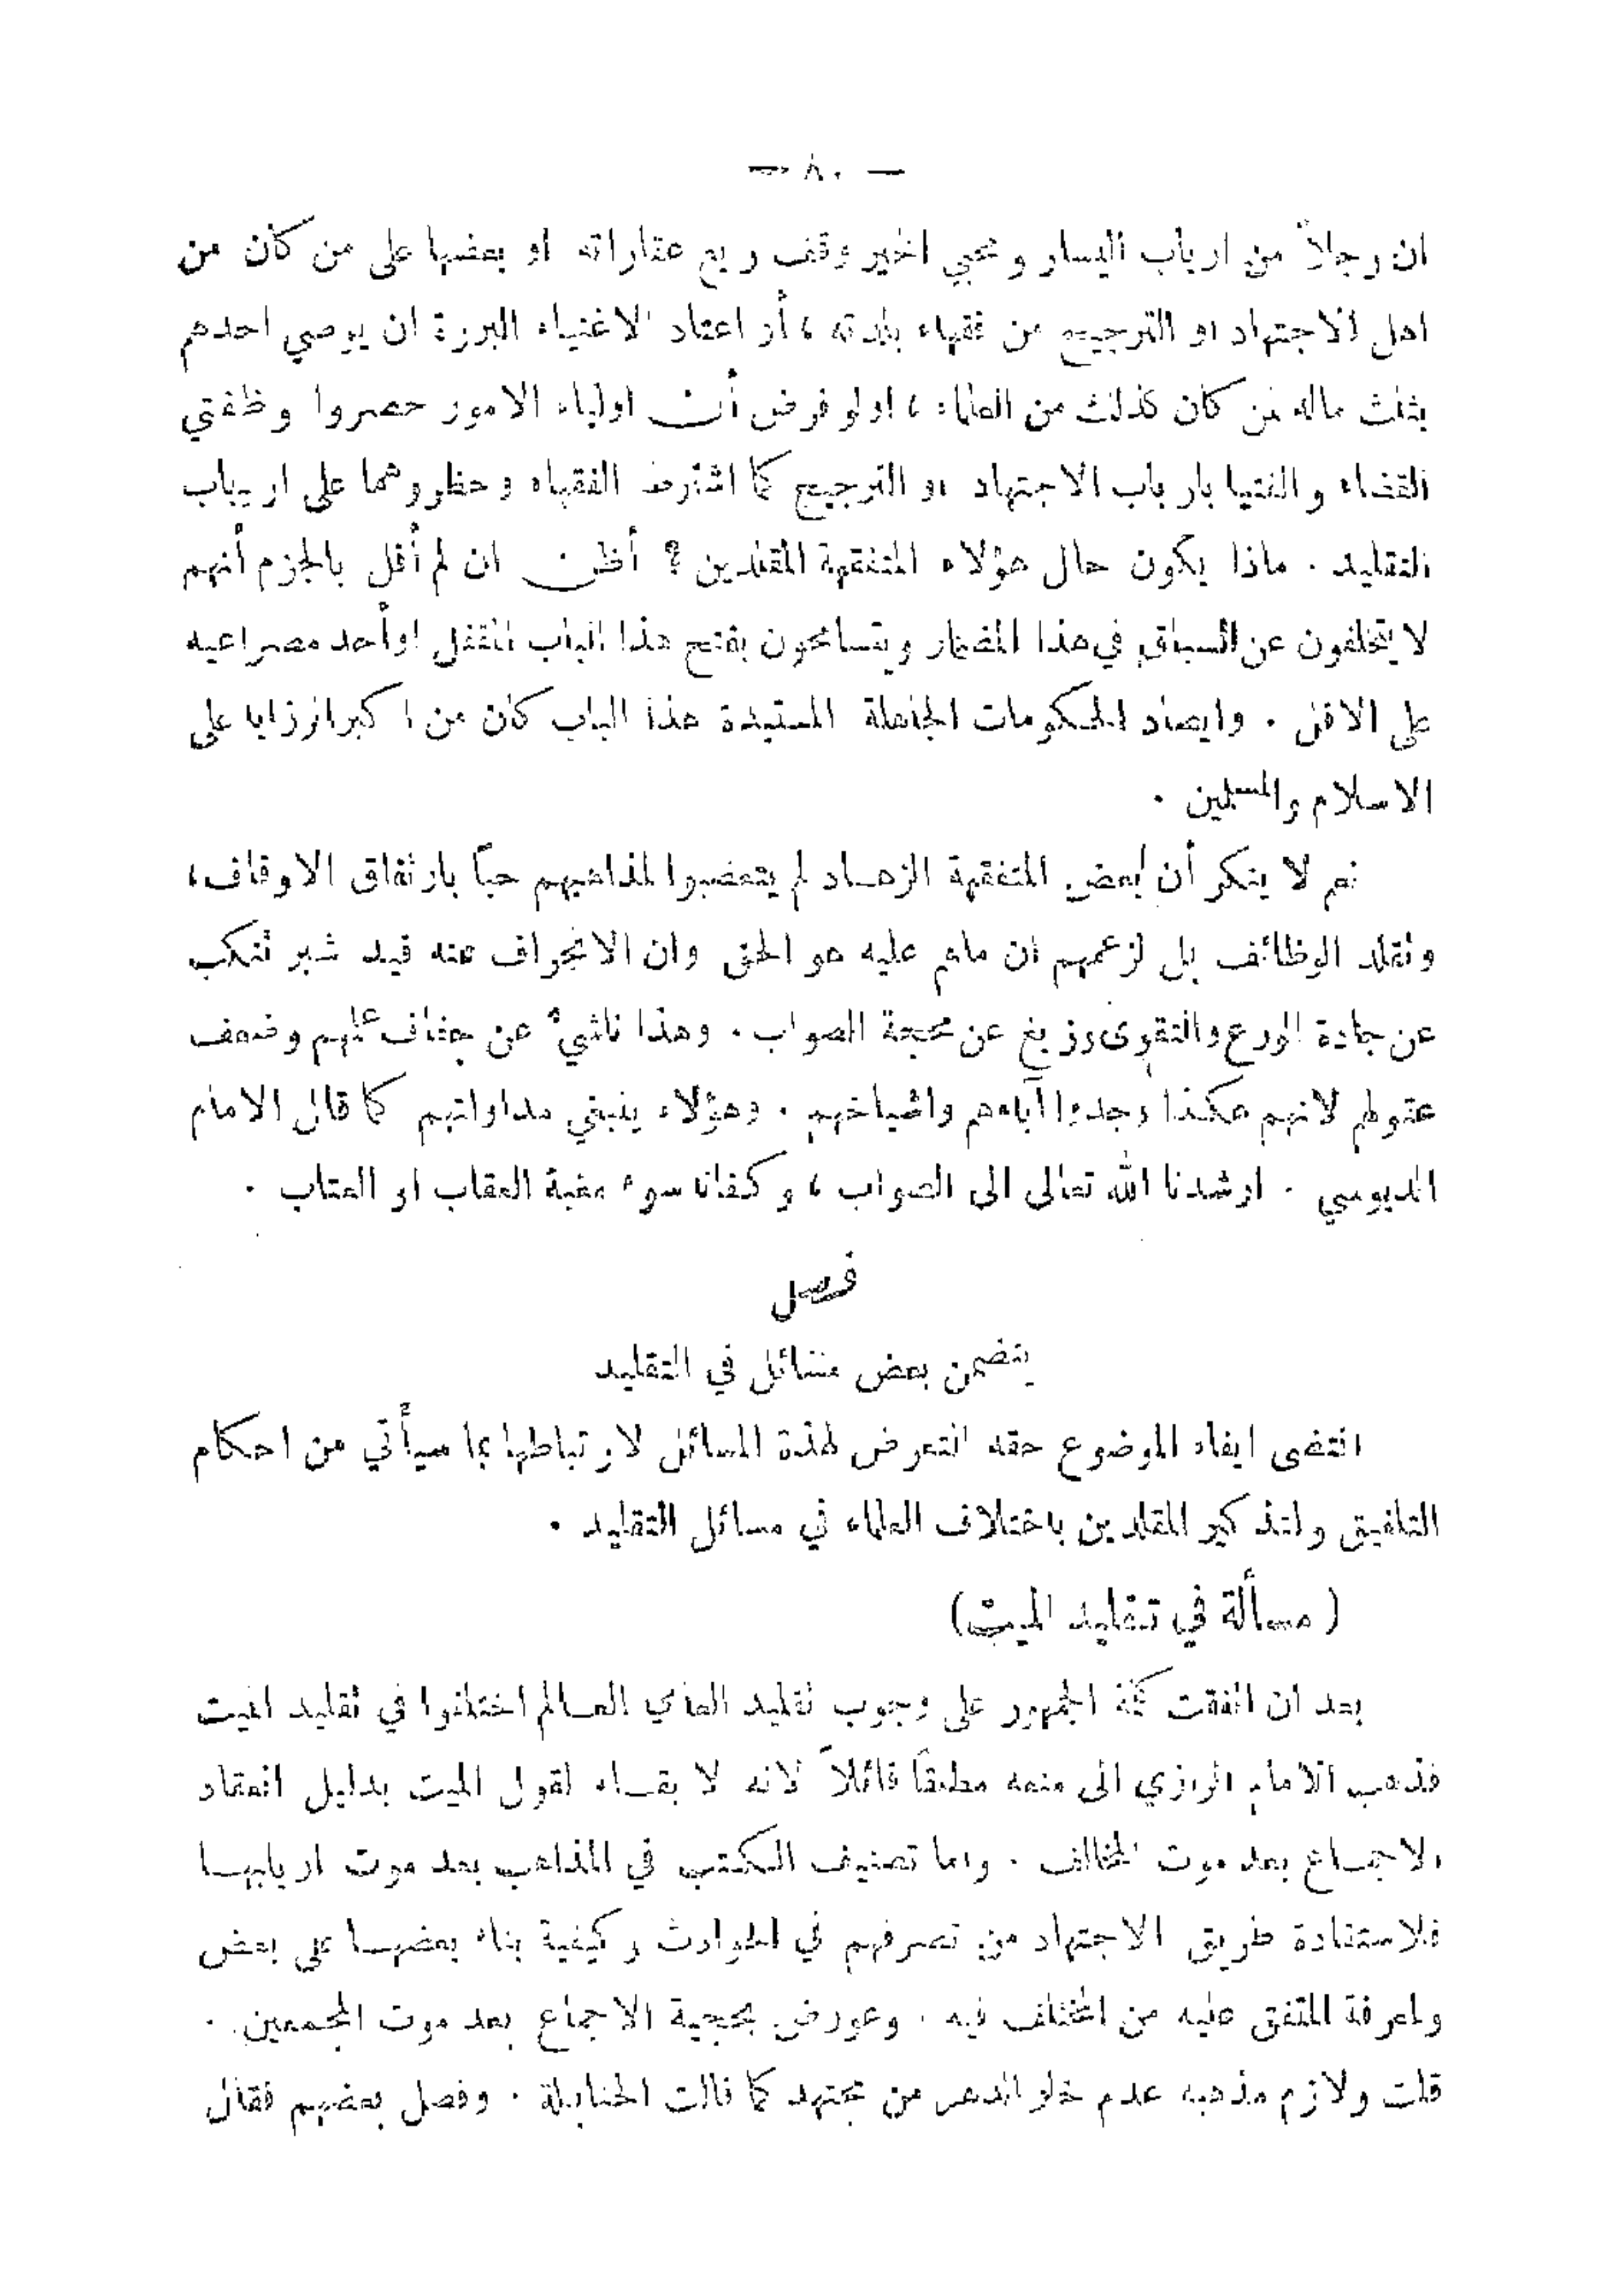 — ٨٠ —
ان رجلاً من ارباب اليسار ومحبي الخير وقف ريع عقاراته او بعضها على من كان من
اهل الاجتهاد او الترجيح من فقهاء بلدته ، أو اعتاد الاغنياء البررة ان يوصي احدهم
بثلث ماله لمن كان كذلك من العلماء ، او لو فرض أن اولياء الامور حصروا وظفتي
القضاء والفتيا بارباب الاجتهاد او الترجيح كما اشترط الفقهاء وحظروهما على ارباب
التقليد . ماذا يكون حال هؤلاء المتفقهة المقلدين ? أظن ان لم أقل بالجزم أنهم
لا يتخلفون عن السباق في هذا المضمار ويتسامحون بفتح هذا الباب المقفل او أحد مصراعيه
على الاقل . وايصاد الحكومات الجاهلة المستبدة هذا الباب كان من اكبر الرزايا على
الاسلام والمسلمين .
نعم لا ينكر أن بعض المتفقهة الزهاد لم يتعصبوا لمذاهبهم حباً بارتفاق الاوقاف ،
وتقلد الوظائف بل لزعمهم ان ماهم عليه هو الحق وان الانحراف عنه قيد شبر تنكب
عن جادة الورع والتقوى وزيغ عن محجة الصواب . وهذا ناشيء عن جفاف علمهم وضعف
عقولهم لانهم هكذا وجدوا آباءهم واشياخهم . وهؤلاء ينبغي مداواتهم كما قال الامام
الدبوسي . ارشدنا الله تعالى الى الصواب ، وكفانا سوء مغبة العقاب او العتاب .
فصل
يتضمن بعض مسائل في التقليد
اقتضى ايفاء الموضوع حقه التعرض لهذه المسائل لارتباطها بما سيأتي من احكام
التلفيق ولتذكير المقلدين باختلاف العلماء في مسائل التقليد .
( مسألة في تقليد الميت )
بعد ان اتفقت كلمة الجمهور على وجوب تقليد العامي العالم اختلفوا في تقليد الميت
فذهب الامام الرازي الى منعه مطلقاً قائلاً لانه لا بقاء لقول الميت بدليل انعقاد
الاجماع بعد موت المخالف . واما تصنيف الكتب في المذاهب بعد موت اربابها
فلاستفادة طريق الاجتهاد من تصرفهم في الحوادث وكيفية بناء بعضها على بعض
ولمعرفة المتفق عليه من المختلف فيه . وعورض بحجية الاجماع بعد موت المجمعين .
قلت ولازم مذهبه عدم خلو الدهر من مجتهد كما قالت الحنابلة . وفصل بعضهم فقال